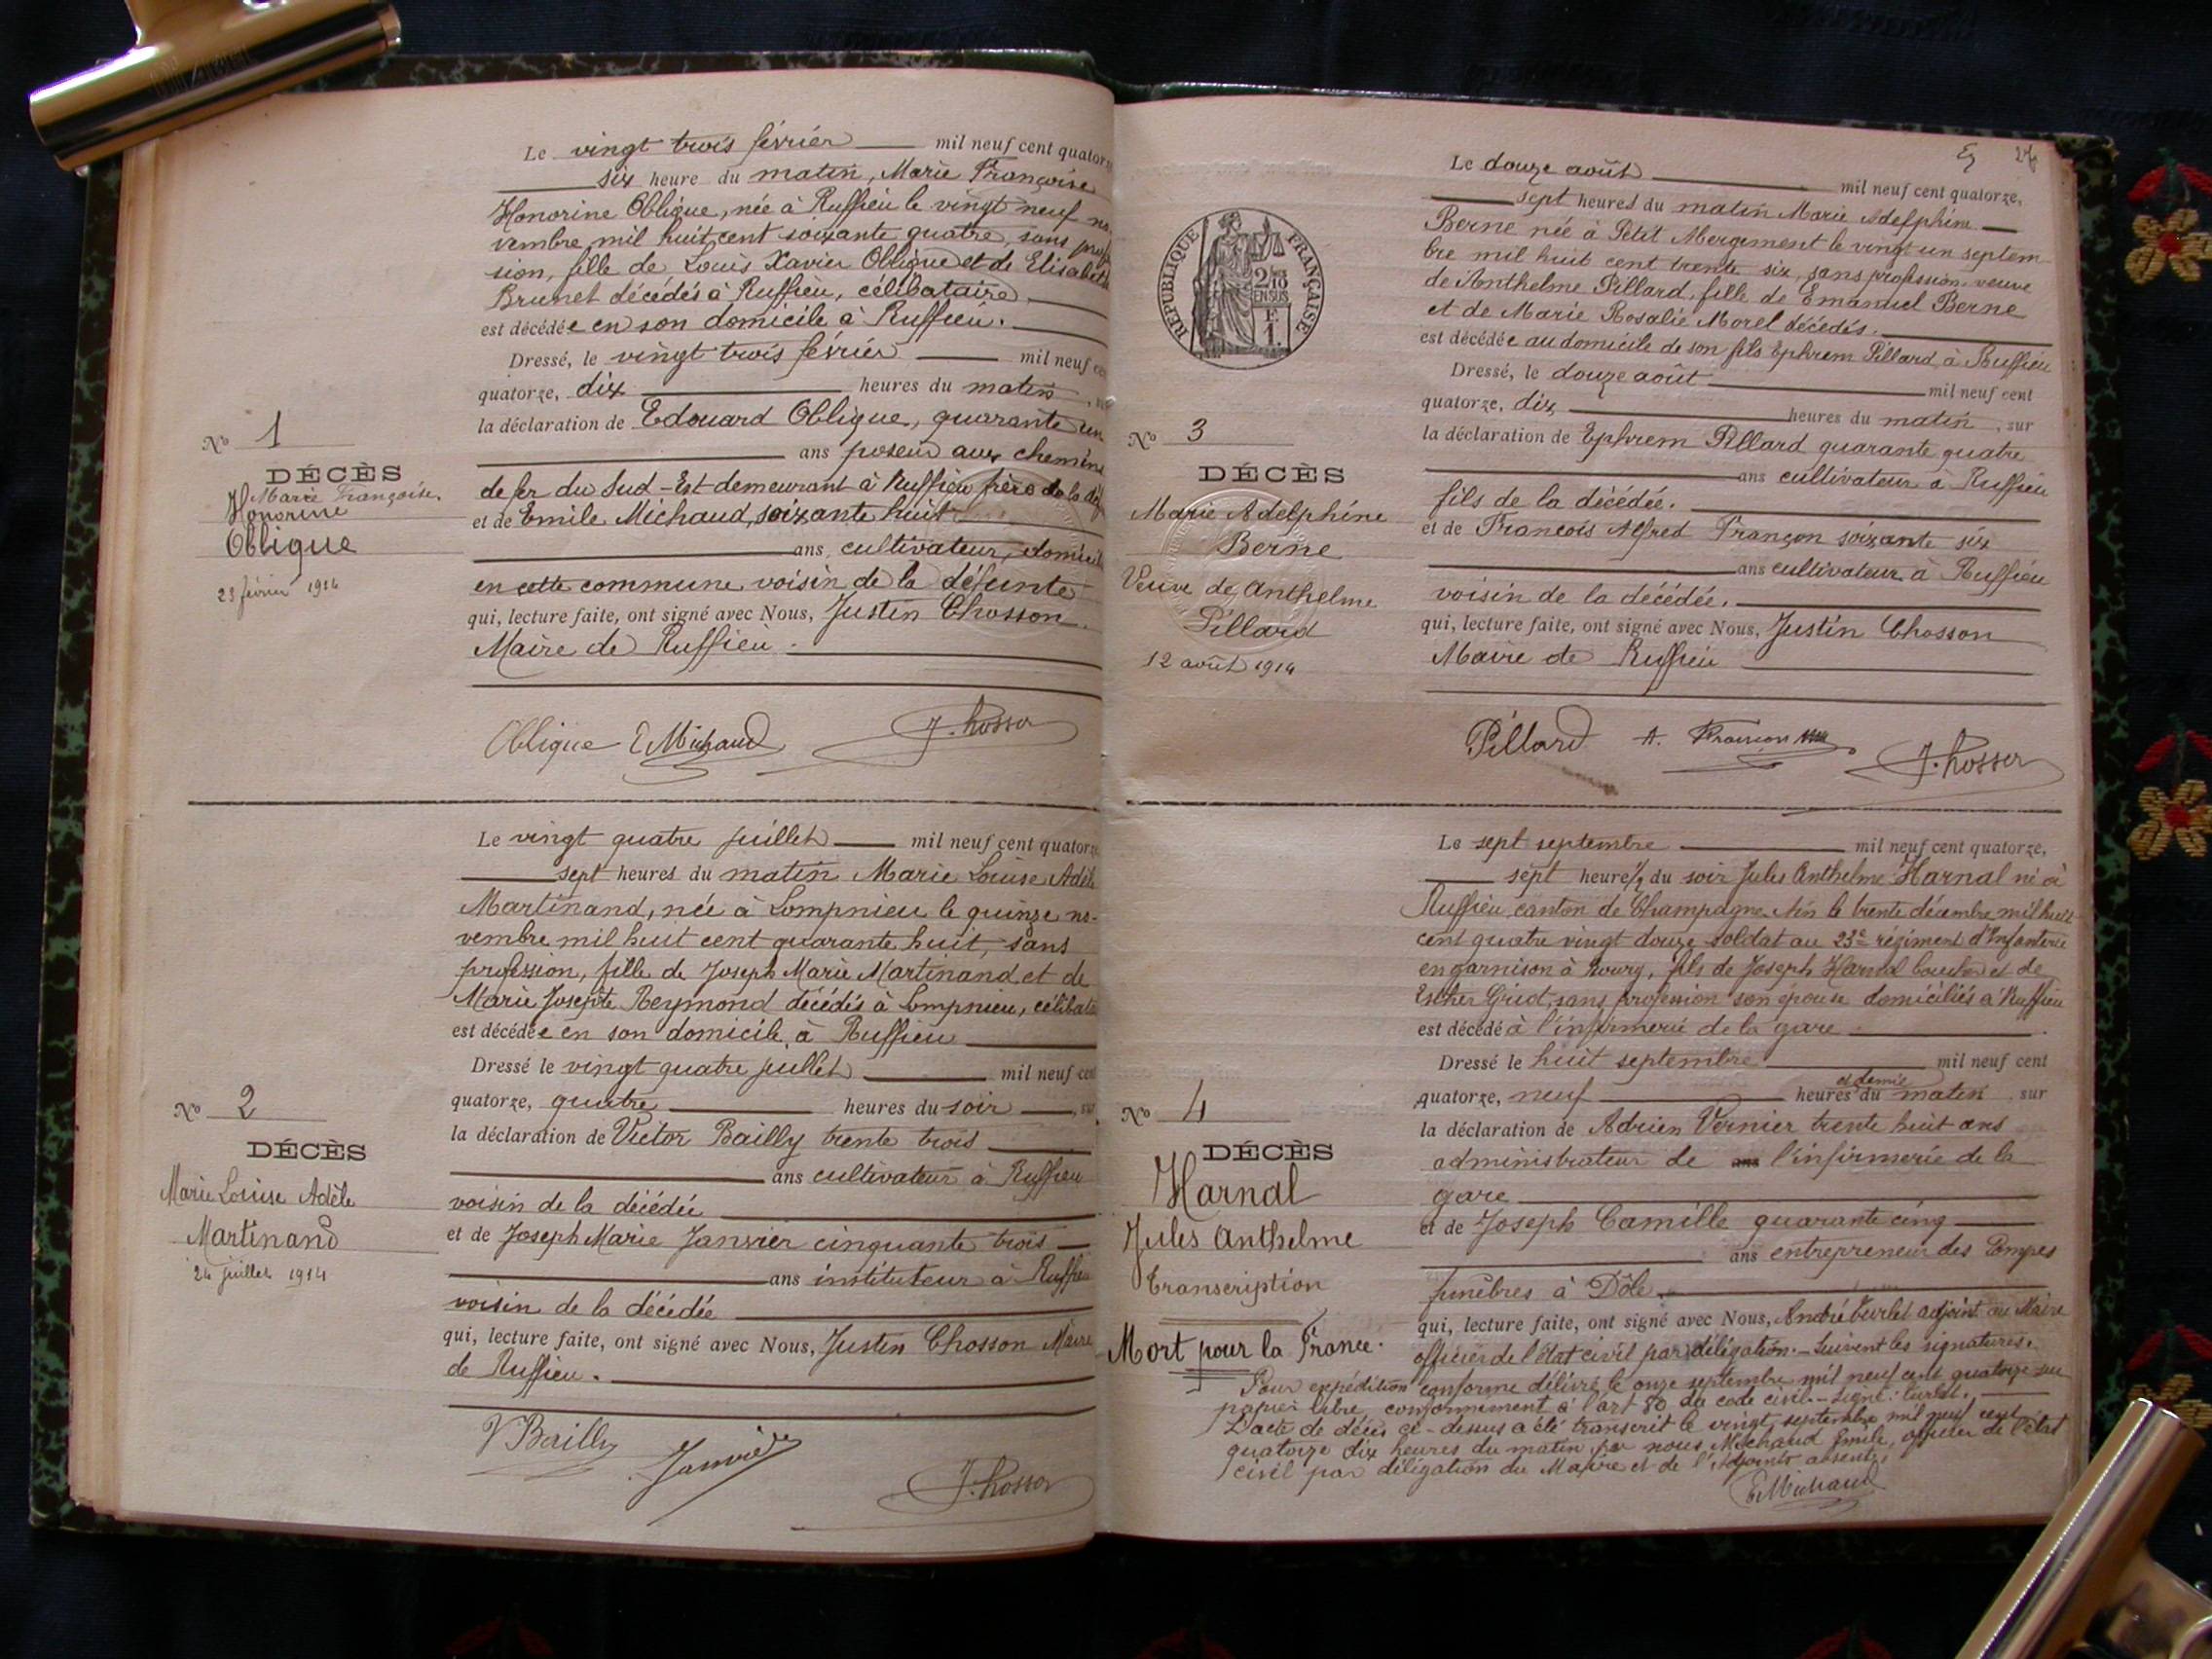 Le vingt trois février mil neuf cent quator
six heure du matin, Marie Françoise
Honorine Oblique, née à Ruffieu le vingt neuf no
vembre mil huit cent soixante quatre, sans profes
sion, fille de Louis Xavier Oblique et de Elisabeth
Brunet décédés à Ruffieu, célibataire
est décédée en son domicile à Ruffieu.
Dressé, le vingt trois février mil neuf cen
quatorze, dix heures du matin,
la déclaration de Edouard Oblique, quarante un
ans poseur aux chemins
de fer du Sud-Est demeurant à Ruffieu frère de la déf
et de Emile Michaud, soixante huit
ans, cultivateur, domicil
en cette commune voisin de la défunte
qui, lecture faite, ont signé avec Nous, Justin Chosson
Maire de Ruffieu.
Oblique E Michaud J. Chosson
No 1
DÉCÈS
Marie Françoise
Honorine
Oblique
23 février 1914
Le vingt quatre juillet mil neuf cent quatorze
sept heures du matin Marie Louise Adèle
Martinand, née à Lompnieu le quinze no-
vembre mil huit cent quarante huit, sans
profession, fille de Joseph Marie Martinand et de
Marie Josephte Reymond décédés à Lompnieu, célibata
est décédée en son domicile à Ruffieu
Dressé le vingt quatre juillet mil neuf cent
quatorze, quatre heures du soir, su
la déclaration de Victor Bailly trente trois
ans cultivateur à Ruffieu
voisin de la décédée
et de Joseph Marie Janvier cinquante trois
ans instituteur à Ruffieu
voisin de la décédée
qui, lecture faite, ont signé avec Nous, Justin Chosson Maire
de Ruffieu.
V Bailly Janvier J. Chosson
No 2
DÉCÈS
Marie Louise Adèle
Martinand
24 juillet 1914
27
RÉPUBLIQUE FRANÇAISE
2/10
EN SUS
F
1
Le douze août mil neuf cent quatorze,
sept heures du matin Marie Adelphine
Berne née à Petit Abergement le vingt un septem
bre mil huit cent trente six, sans profession, veuve
de Anthelme Pillard, fille de Emanuel Berne
et de Marie Rosalie Morel décédés.
est décédée au domicile de son fils Ephrem Pillard à Ruffieu
Dressé, le douze août mil neuf cent
quatorze, dix heures du matin, sur
la déclaration de Ephrem Pillard quarante quatre
ans cultivateur à Ruffieu
fils de la décédée.
et de François Alfred Françon soixante six
ans cultivateur à Ruffieu
voisin de la décédée.
qui, lecture faite, ont signé avec Nous, Justin Chosson
Maire de Ruffieu
Pillard A. Françon J. Chosson
No 3
DÉCÈS
Marie Adelphine
Berne
Veuve de Anthelme
Pillard
12 août 1914
Le sept septembre mil neuf cent quatorze,
sept heure 1/2 du soir Jules Anthelme Harnal né à
Ruffieu, canton de Champagne Ain le trente décembre mil huit
cent quatre vingt douze soldat au 23e régiment d'Infanterie
en garnison à Bourg, fils de Joseph Harnal et de
Esther Griot, sans profession son épouse domiciliés à Ruffieu
est décédé à l'infirmerie de la gare
Dressé le huit septembre mil neuf cent
quatorze, neuf heures et demie du matin sur
la déclaration de Adrien Vernier trente huit ans
administrateur de l'infirmerie de la
gare
et de Joseph Camille quarante cinq
ans entrepreneur des Pompes
funèbres à Dôle
qui, lecture faite, ont signé avec Nous, André adjoint au Maire
officier de l'état civil par délégation. - Suivent les signatures.
Pour expédition conforme délivré le onze septembre mil neuf cent quatorze sur
papier libre, conformément à l'art 80 du code civil. - Signé:
L'acte de décès ci-dessus a été transcrit le vingt septembre mil neuf cent
quatorze dix heures du matin par nous Michaud Emile, officier de l'état
civil par délégation du Maire et de l'Adjoint absents.
E Michaud
No 4
DÉCÈS
Harnal
Jules Anthelme
transcription
Mort pour la France.